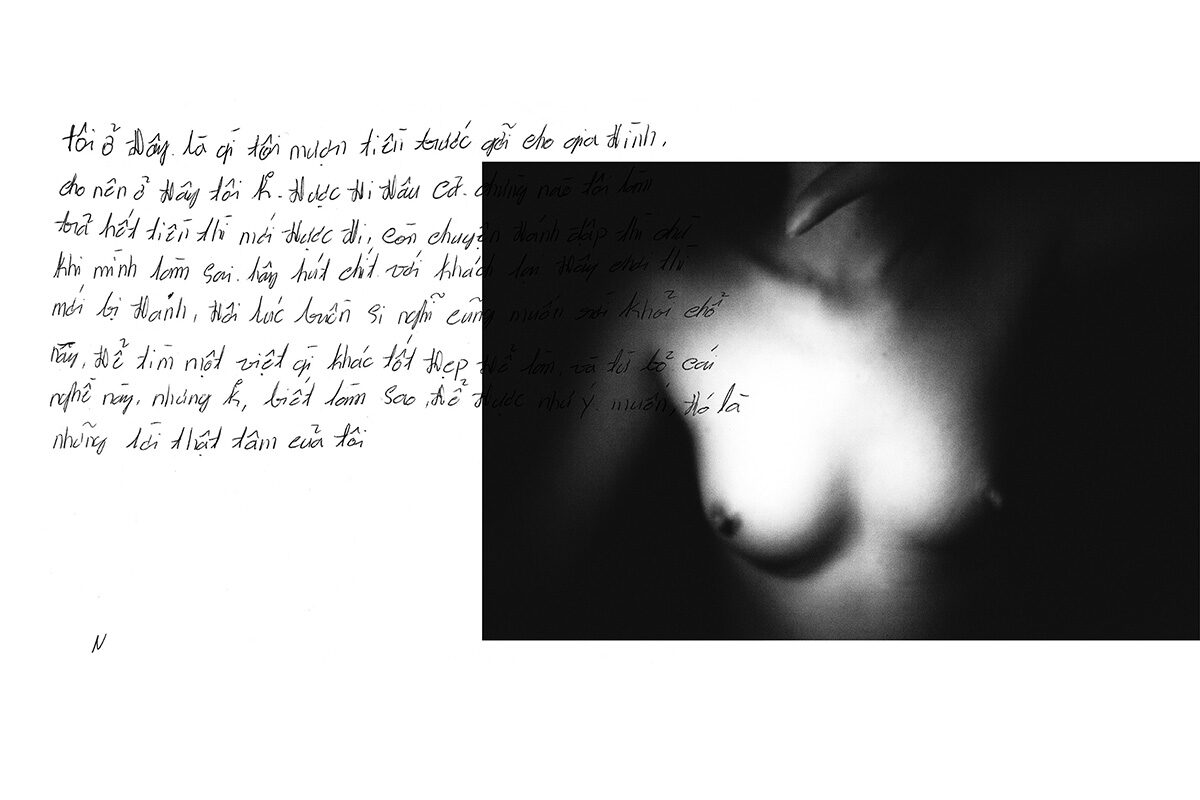 tôi ở đây. là gì tôi mượn tiền trước gởi cho gia đình.
cho nên ở đây tôi k. được đi đâu cả. chừng nào tôi làm
trả hết tiền thì mới được đi, còn chuyện đánh đập thì chứ
khi mình làm sai. hây hút chít với khách lại đây chơi thì
mới bị đánh, đôi lúc buồn si nghĩ cũng muốn rời khỏi chổ
này, để tìm một việt gì khác tốt đẹp để làm, và từ bỏ cái
nghề này, nhưng k, biết làm sao để được như ý muốn, đó là
những lời thật tâm của tôi
N